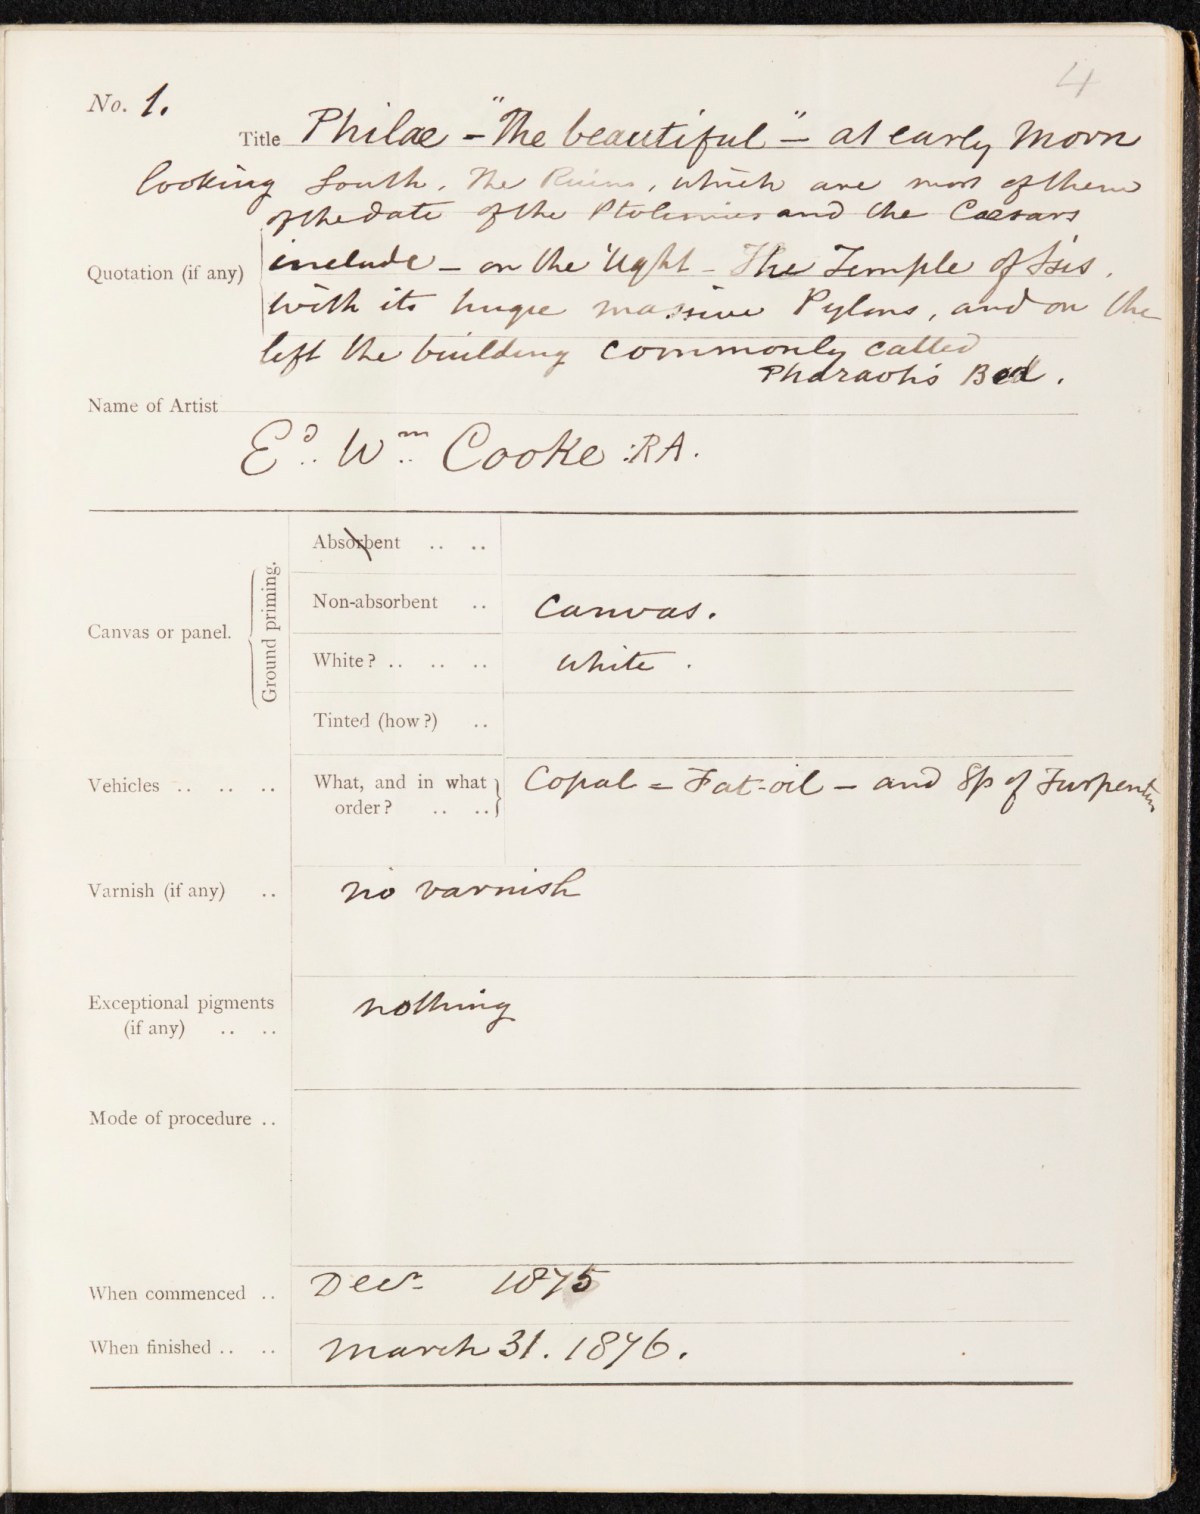 4
No. 1.
Title Philae - "The beautiful" - at early Morn
looking South. The Ruins, which are most of them
of the date of the Ptolemies and the Caesars
Quotation (if any) include - on the right - The Temple of Isis.
with its huge massive Pylons, and on the
left the building commonly called
Pharaoh's Bed.
Name of Artist
Ed. Wm. Cooke :RA.
Canvas or panel.
Ground priming.
Absorbent .. ..
Non-absorbent .. Canvas.
White? .. .. .. white.
Tinted (how?) ..
Vehicles .. .. .. What, and in what order? .. .. Copal = Fat-oil - and Sp of Turpentin
Varnish (if any) .. no varnish
Exceptional pigments
(if any) .. .. nothing
Mode of procedure ..
When commenced .. Decr. 1875
When finished .. .. March 31. 1876.